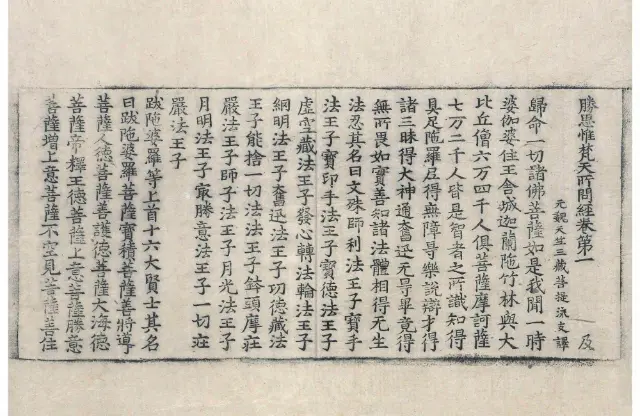 勝思惟梵天所問經卷第一 及
元魏天竺三藏菩提流支譯
歸命一切諸佛菩薩如是我聞一時
婆伽婆住王舍城迦蘭陁竹林與大
比丘僧六万四千人俱菩薩摩訶薩
七万二千人皆是智者之所識知得
具足陁羅尼得無障导樂說辯才得
諸三昧得大神通奮迅无导畢竟得
無所畏如實善知諸法體相得无生
法忍其名曰文殊師利法王子寶手
法王子寶印手法王子寶德法王子
虛空藏法王子發心轉法輪法王子
網明法王子奮迅法王子功德藏法
王子能捨一切法法王子鉢頭摩莊
嚴法王子師子法王子月光法王子
月明法王子最勝意法王子一切莊
嚴法王子
跋陁婆羅等上首十六大賢士其名
曰跋陁婆羅菩薩寶積菩薩善將導
菩薩人德菩薩善護德菩薩大海德
菩薩帝釋王德菩薩上意菩薩勝意
菩薩增上意菩薩不空見菩薩善住